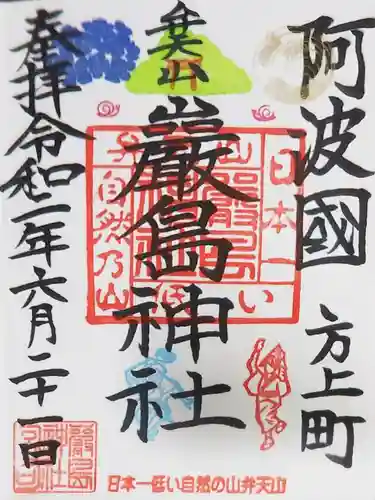 阿波國 方上町
嚴島神社
奉拝 令和二年六月二十一日
日本一
低い
自然乃山
日本一低い自然の山弁天山